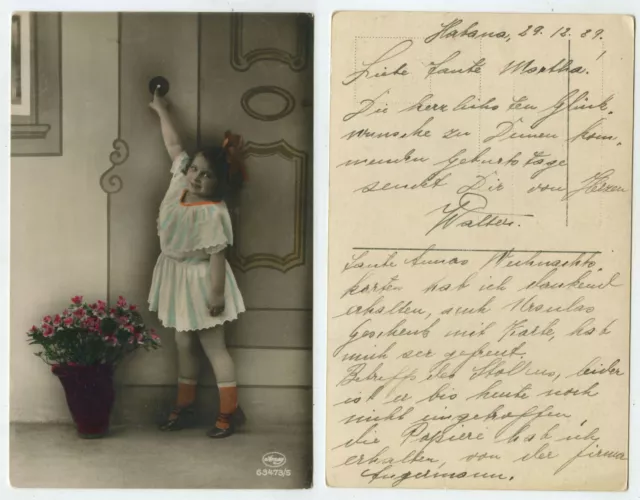 63473/5
Habana, 29.12.29.
Liebe Tante Martha!
Die herrlichsten Glück-
wünsche zu Deinem kom-
menden Geburtstage
sendet Dir von Herzen
Walter.
Tante Annas Weihnachts-
karten hab ich dankend
erhalten, auch Ursulas
geschenk mit Karte, hab
mich ser gefreut.
Betreffs des Stollens, leider
ist er bis heute noch
nicht eingetroffen,
die Papiere hab ich
erhalten, von der firma
Angermann.